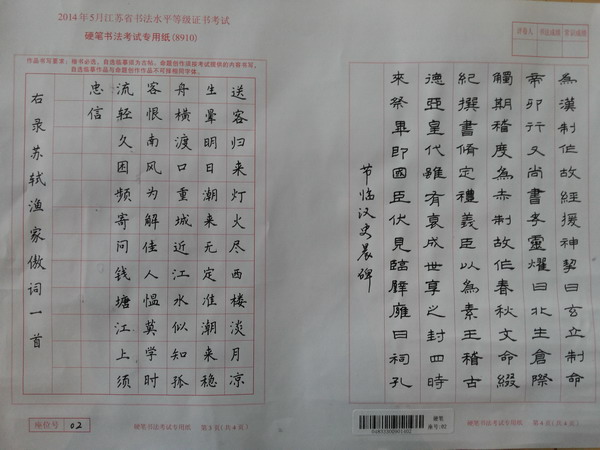 2014年5月江苏省书法水平等级证书考试
硬笔书法考试专用纸(8910)
送客归来灯火尽西楼淡月凉
生晕明日潮来无定准潮来稳
舟横渡口重城近江水似知孤
客恨南风为解佳人愠莫学时
流轻久困频寄问钱塘江上须
忠信
右录苏轼渔家傲词一首
座位号 02
硬笔书法考试专用纸 第3页(共4页)
為漢制作故經援神挈曰玄丘制命
帝卯行又尚書考靈燿曰北生倉際
觸期稽度為赤制故作春秋文命綴
紀撰書脩定禮義臣以為素王稽古
德亞皇代雖有褒成世享之封四時
來祭畢即國臣伏見臨辟雍日祠孔
节临汉史晨碑
硬笔
座号:02
硬笔书法考试专用纸 第4页(共4页)